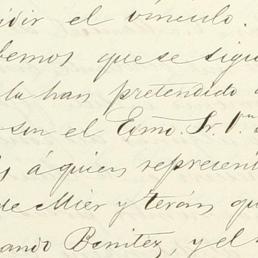 idir el vínculo.
bemos que se sigu
la han pretendido
son el Exmo. Sr. D.n
s á quien represent
de Mier y terán qu
ando Benitez, y el